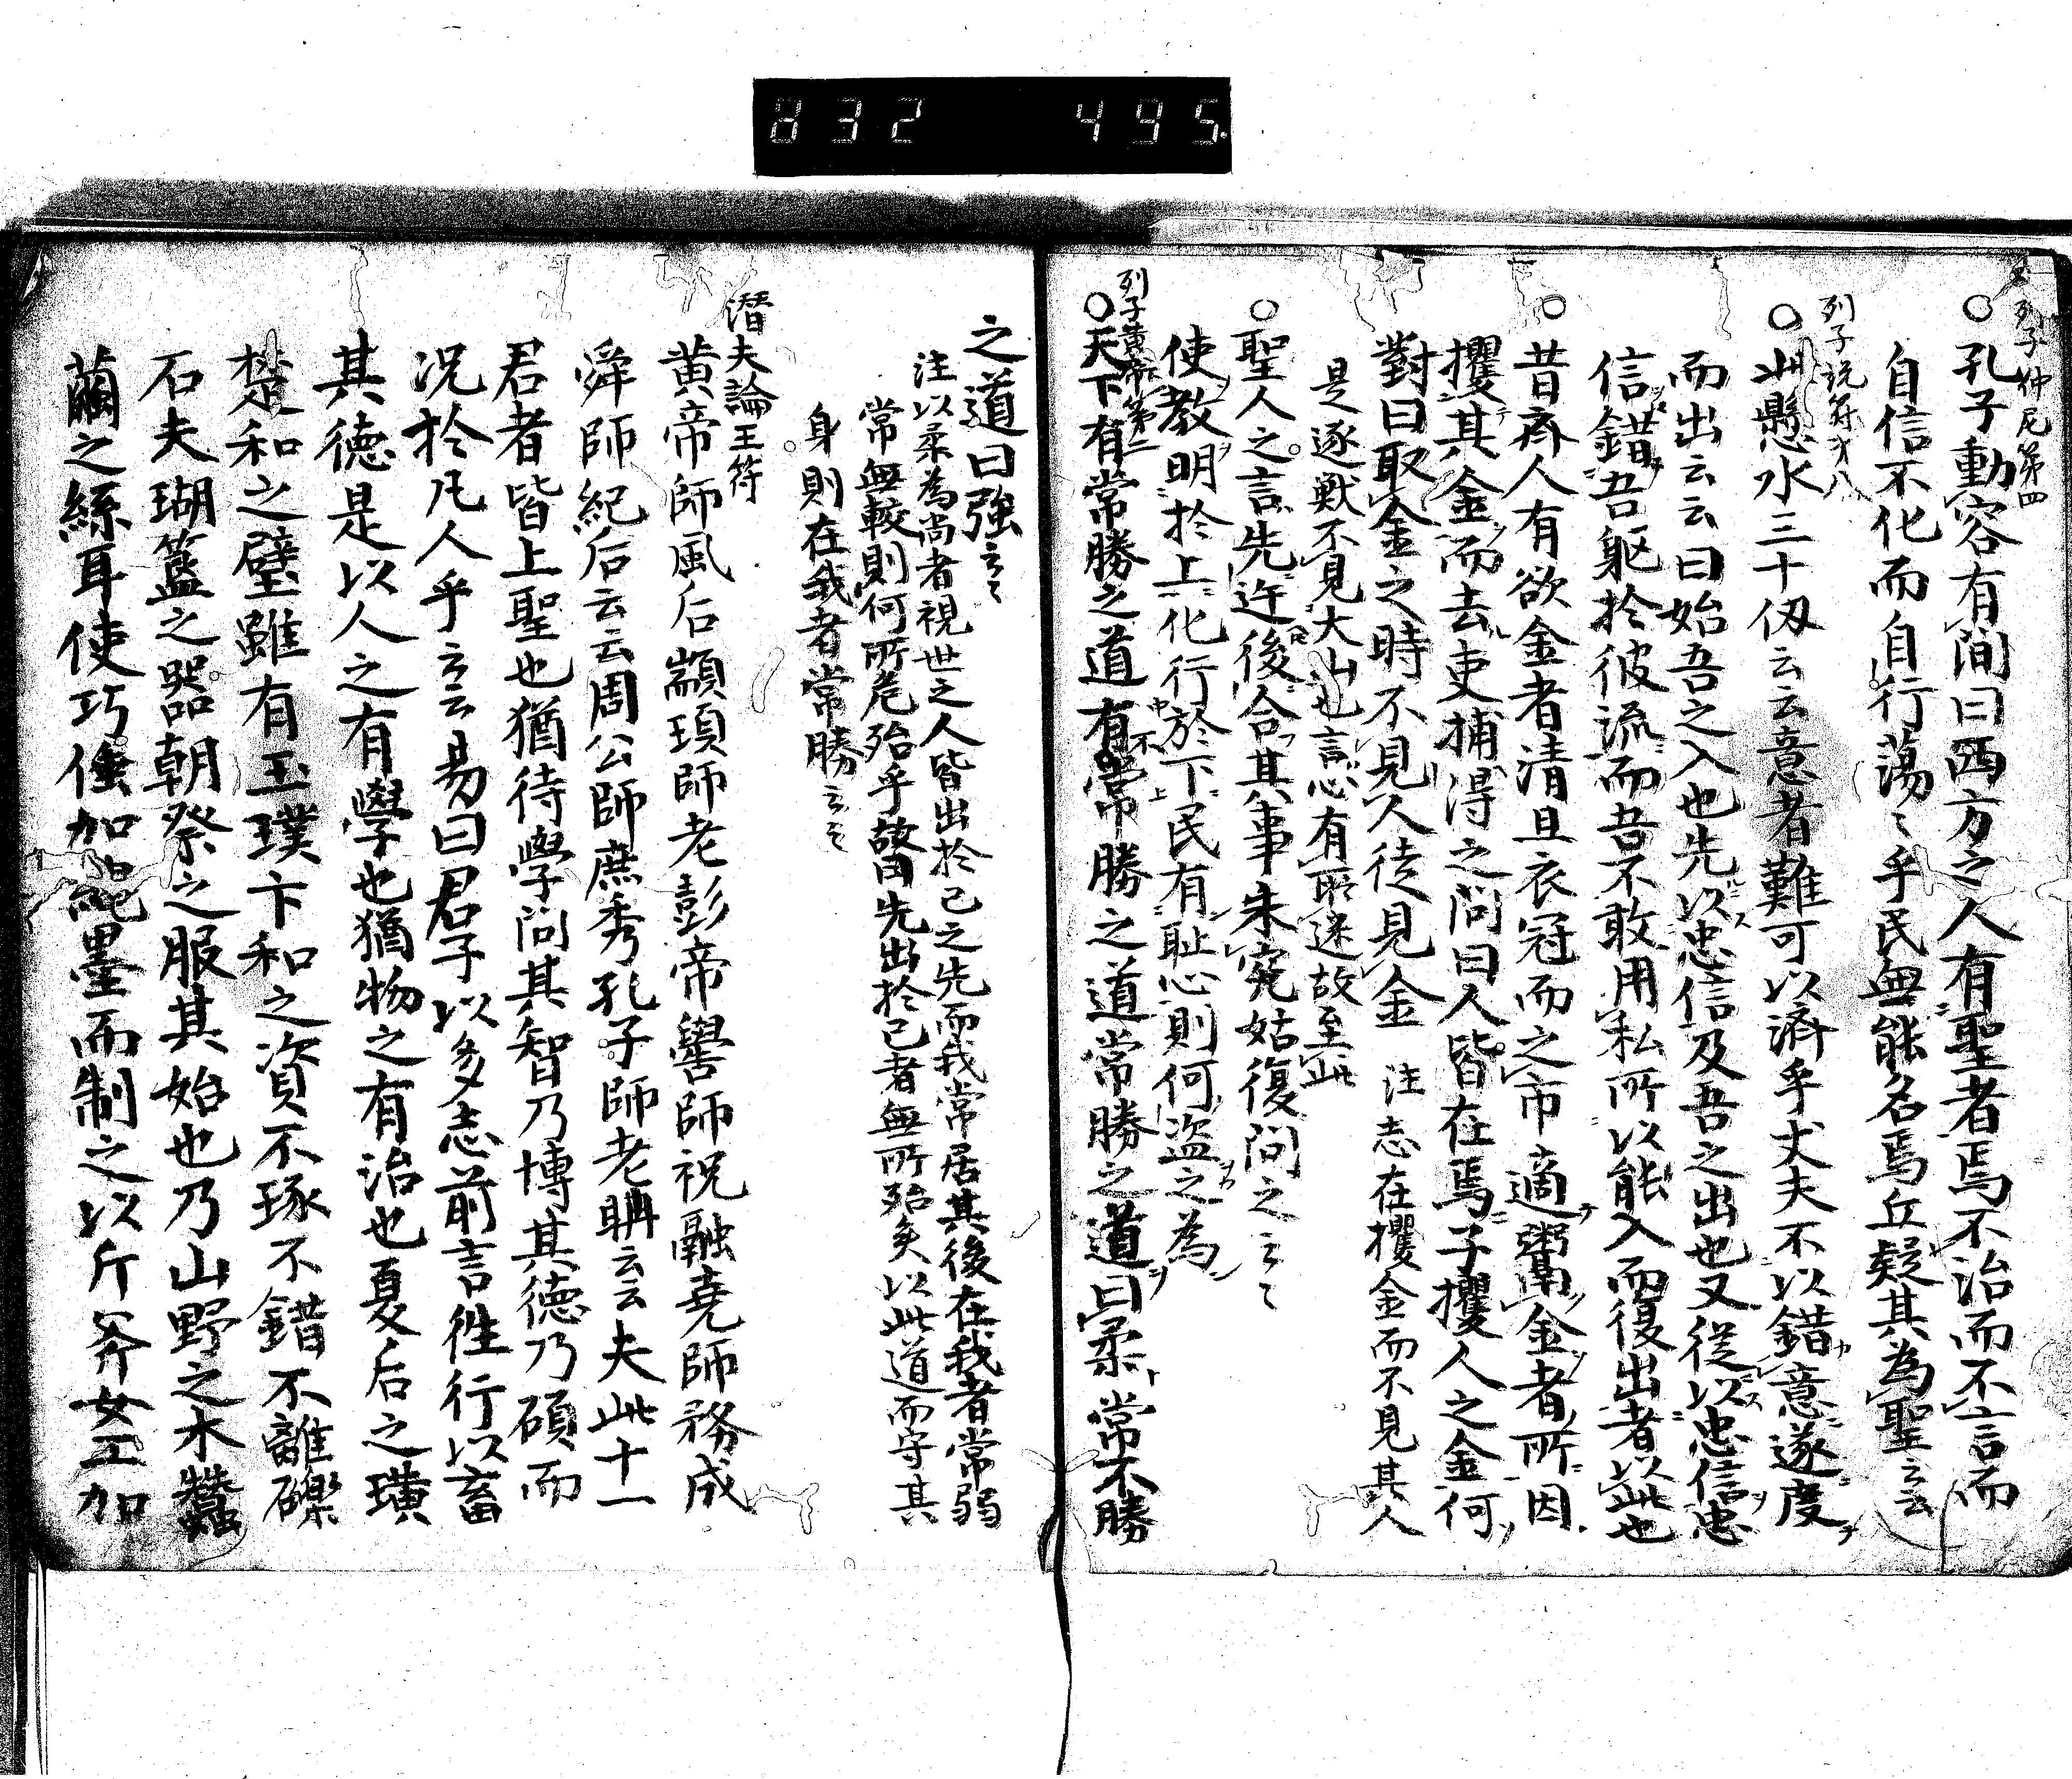 832 495
列子仲尼第四
○孔子動容有間曰西方之人有聖者焉不治而不言而
自信不化而自行蕩〻乎民無能名焉丘疑其為聖云云
列子説符才八
○此懸水三十仞云云意者難可以済乎丈夫不以錯意遂度
而出云云曰始吾之入也先以忠信及吾之出也又従以忠信忠
信錯吾躯於彼流而吾不敢用私所以能入而復出者以此也
○昔斉人有欲金者清旦衣冠而之市適鬻金者所因
攫其金而去吏捕得之問曰人皆在焉子攫人之金何
對曰取金之時不見人徒見金 注志在攫金而不見其人
是逐獣不見大山也言心有所迷故至此
○聖人之言先迕後合其事朱宛姑復問之云〻
使教明於上化行於下民有耻心則何盗之為
列子黄帝第二
○天下有常勝之道有不常勝之道常勝之道曰柔常不勝
之道曰強云〻
注以柔為尚者視世之人皆出於己之先而我常居其後在我者常弱
常無較則何所危殆乎故曰先出於己者無所殆矣以此道而守其
身則在我者常勝云云
潜夫論王符
黄帝師風后顓頊師老彭帝嚳師祝融堯師務成
舜師紀后云云周公師庶秀孔子師老聃云云夫此十一
君者皆上聖也猶待學問其智乃博其徳乃碩而
况於凡人乎云云易曰君子以多志前言徃行以畜
其徳是以人之有學也猶物之有治也夏后之璜
楚和之璧雖有玉璞卞和之資不琢不錯不離礫
石夫瑚簋之器朝祭之服其始也乃山野之木蠶
繭之絲耳使巧倕加繩墨而制之以斤斧女工加